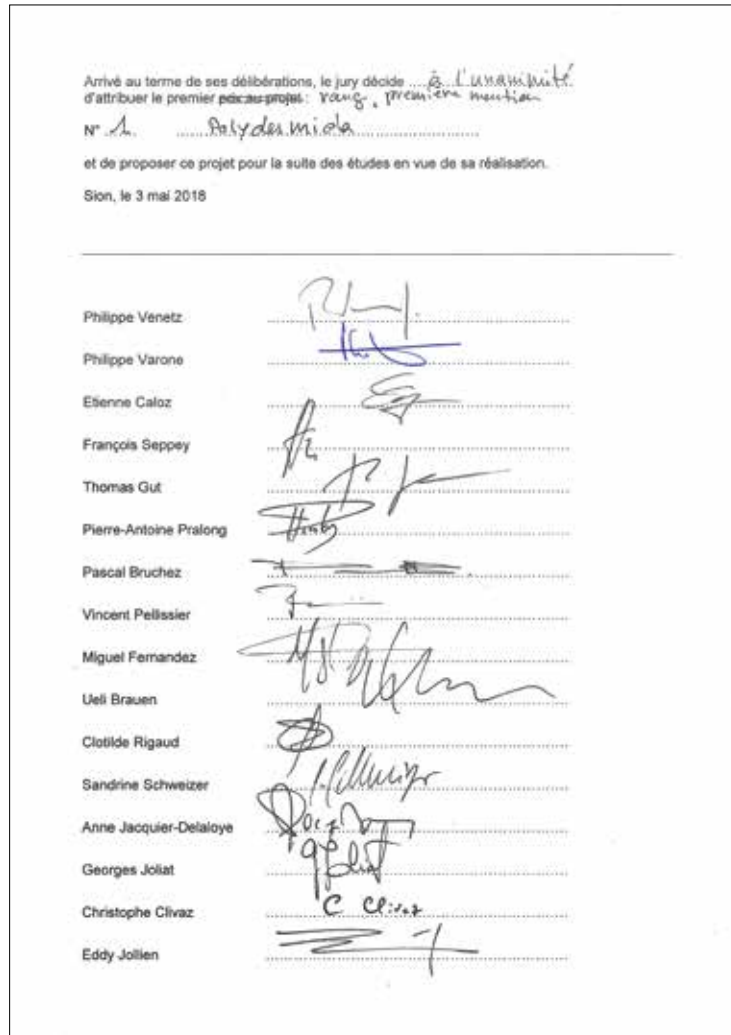 Arrivé au terme de ses délibérations, le jury décide .... à l'unanimité
d'attribuer le premier prix au projet : rang, première mention
N° 1. ..... Polydesmida .....
et de proposer ce projet pour la suite des études en vue de sa réalisation.
Sion, le 3 mai 2018
Philippe Venetz
Philippe Varone
Etienne Caloz
François Seppey
Thomas Gut
Pierre-Antoine Pralong
Pascal Bruchez
Vincent Pellissier
Miguel Fernandez
Ueli Brauen
Clotilde Rigaud
Sandrine Schweizer
Anne Jacquier-Delaloye
Georges Joliat
Christophe Clivaz C Clivaz
Eddy Jollien